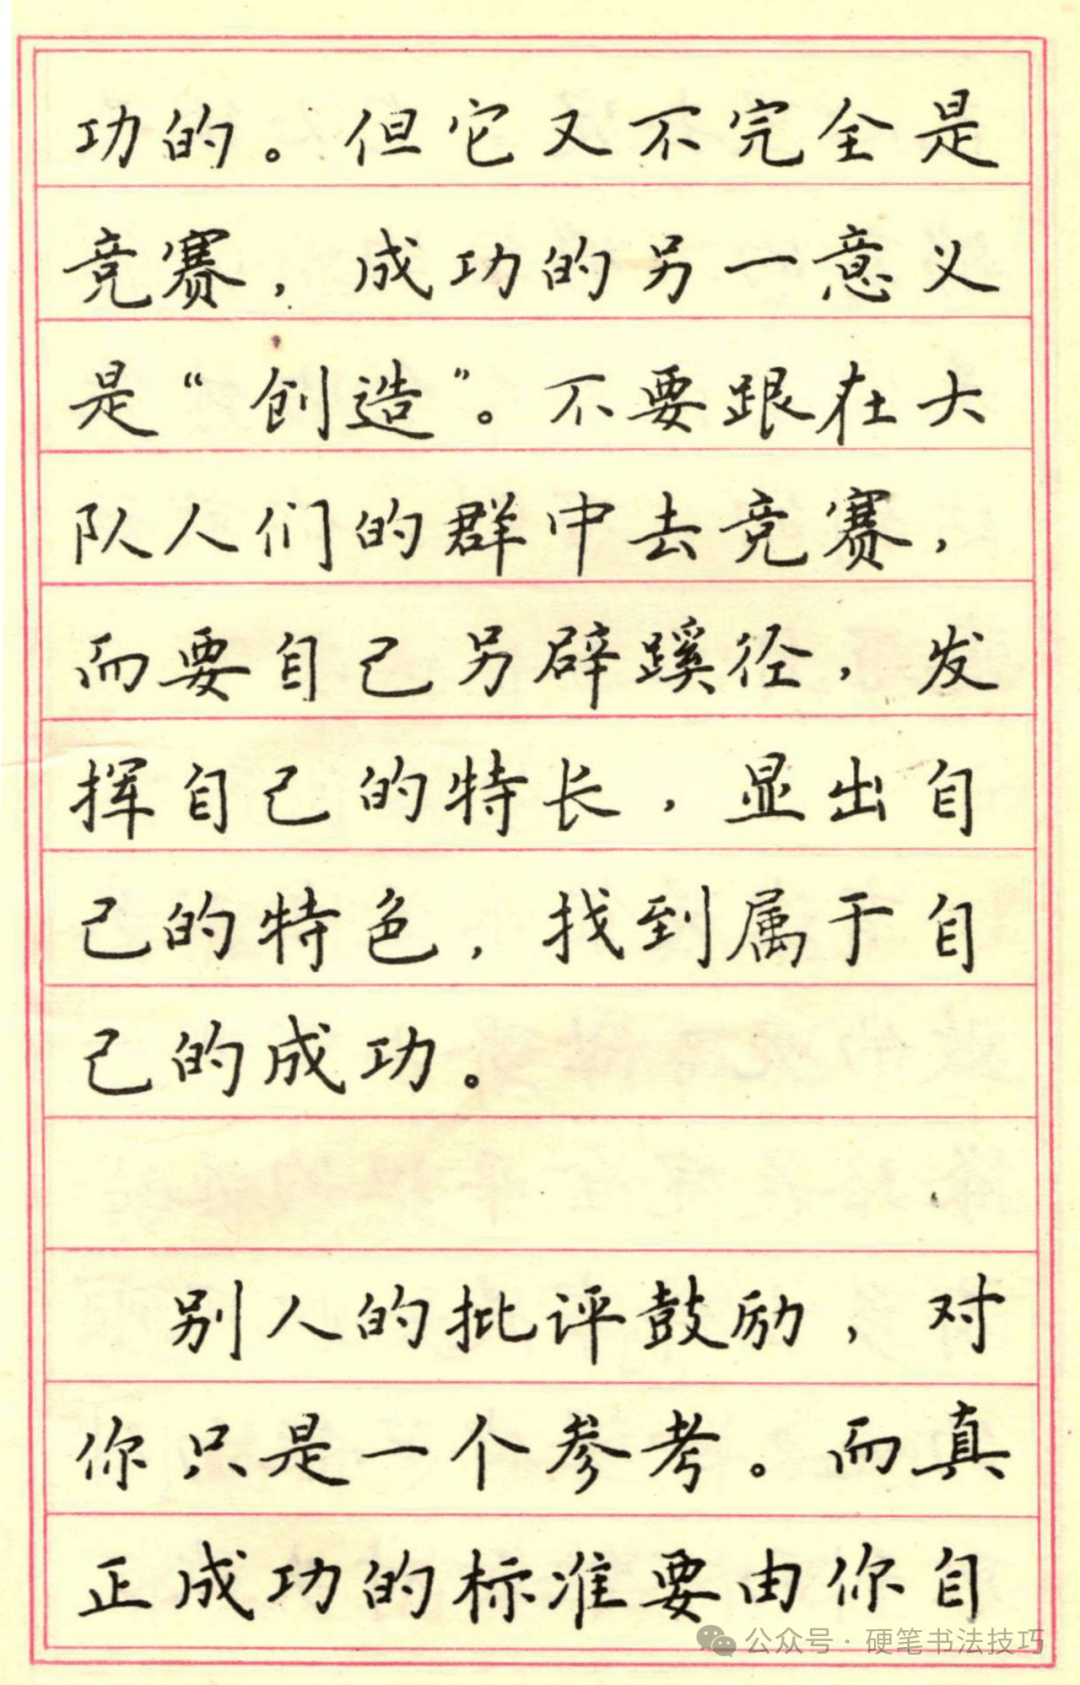 功的。但它又不完全是
竞赛，成功的另一意义
是“创造”。不要跟在大
队人们的群中去竞赛，
而要自己另辟蹊径，发
挥自己的特长，显出自
己的特色，找到属于自
己的成功。
别人的批评鼓励，对
你只是一个参考。而真
正成功的标准要由你自
公众号·硬笔书法技巧